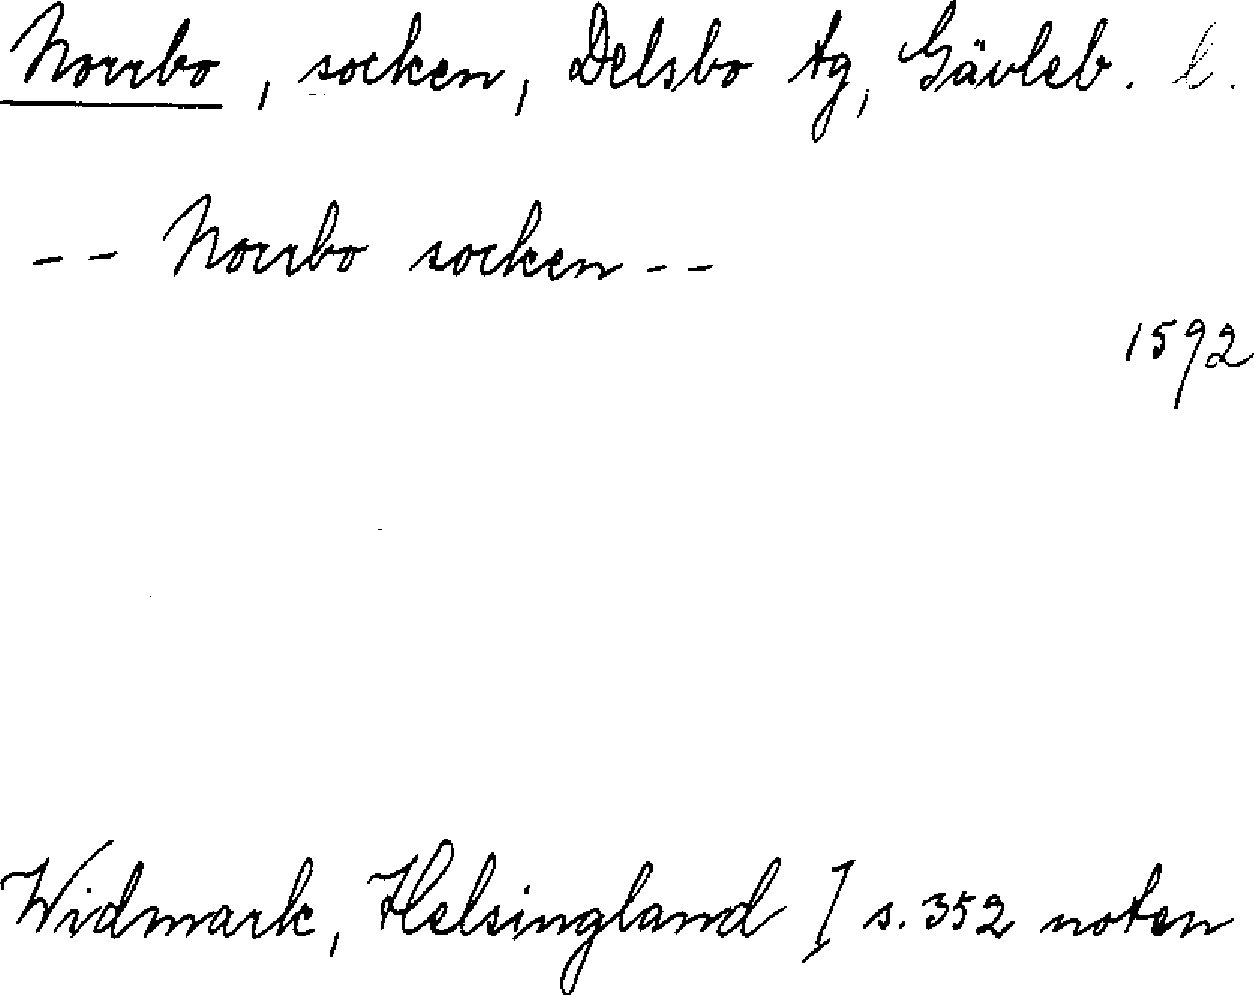 Norrbo, socken, Delsbo tg, Gävleb. l.
-- Norrbo socken --
1592
Widmark, Helsingland I s. 352 noten